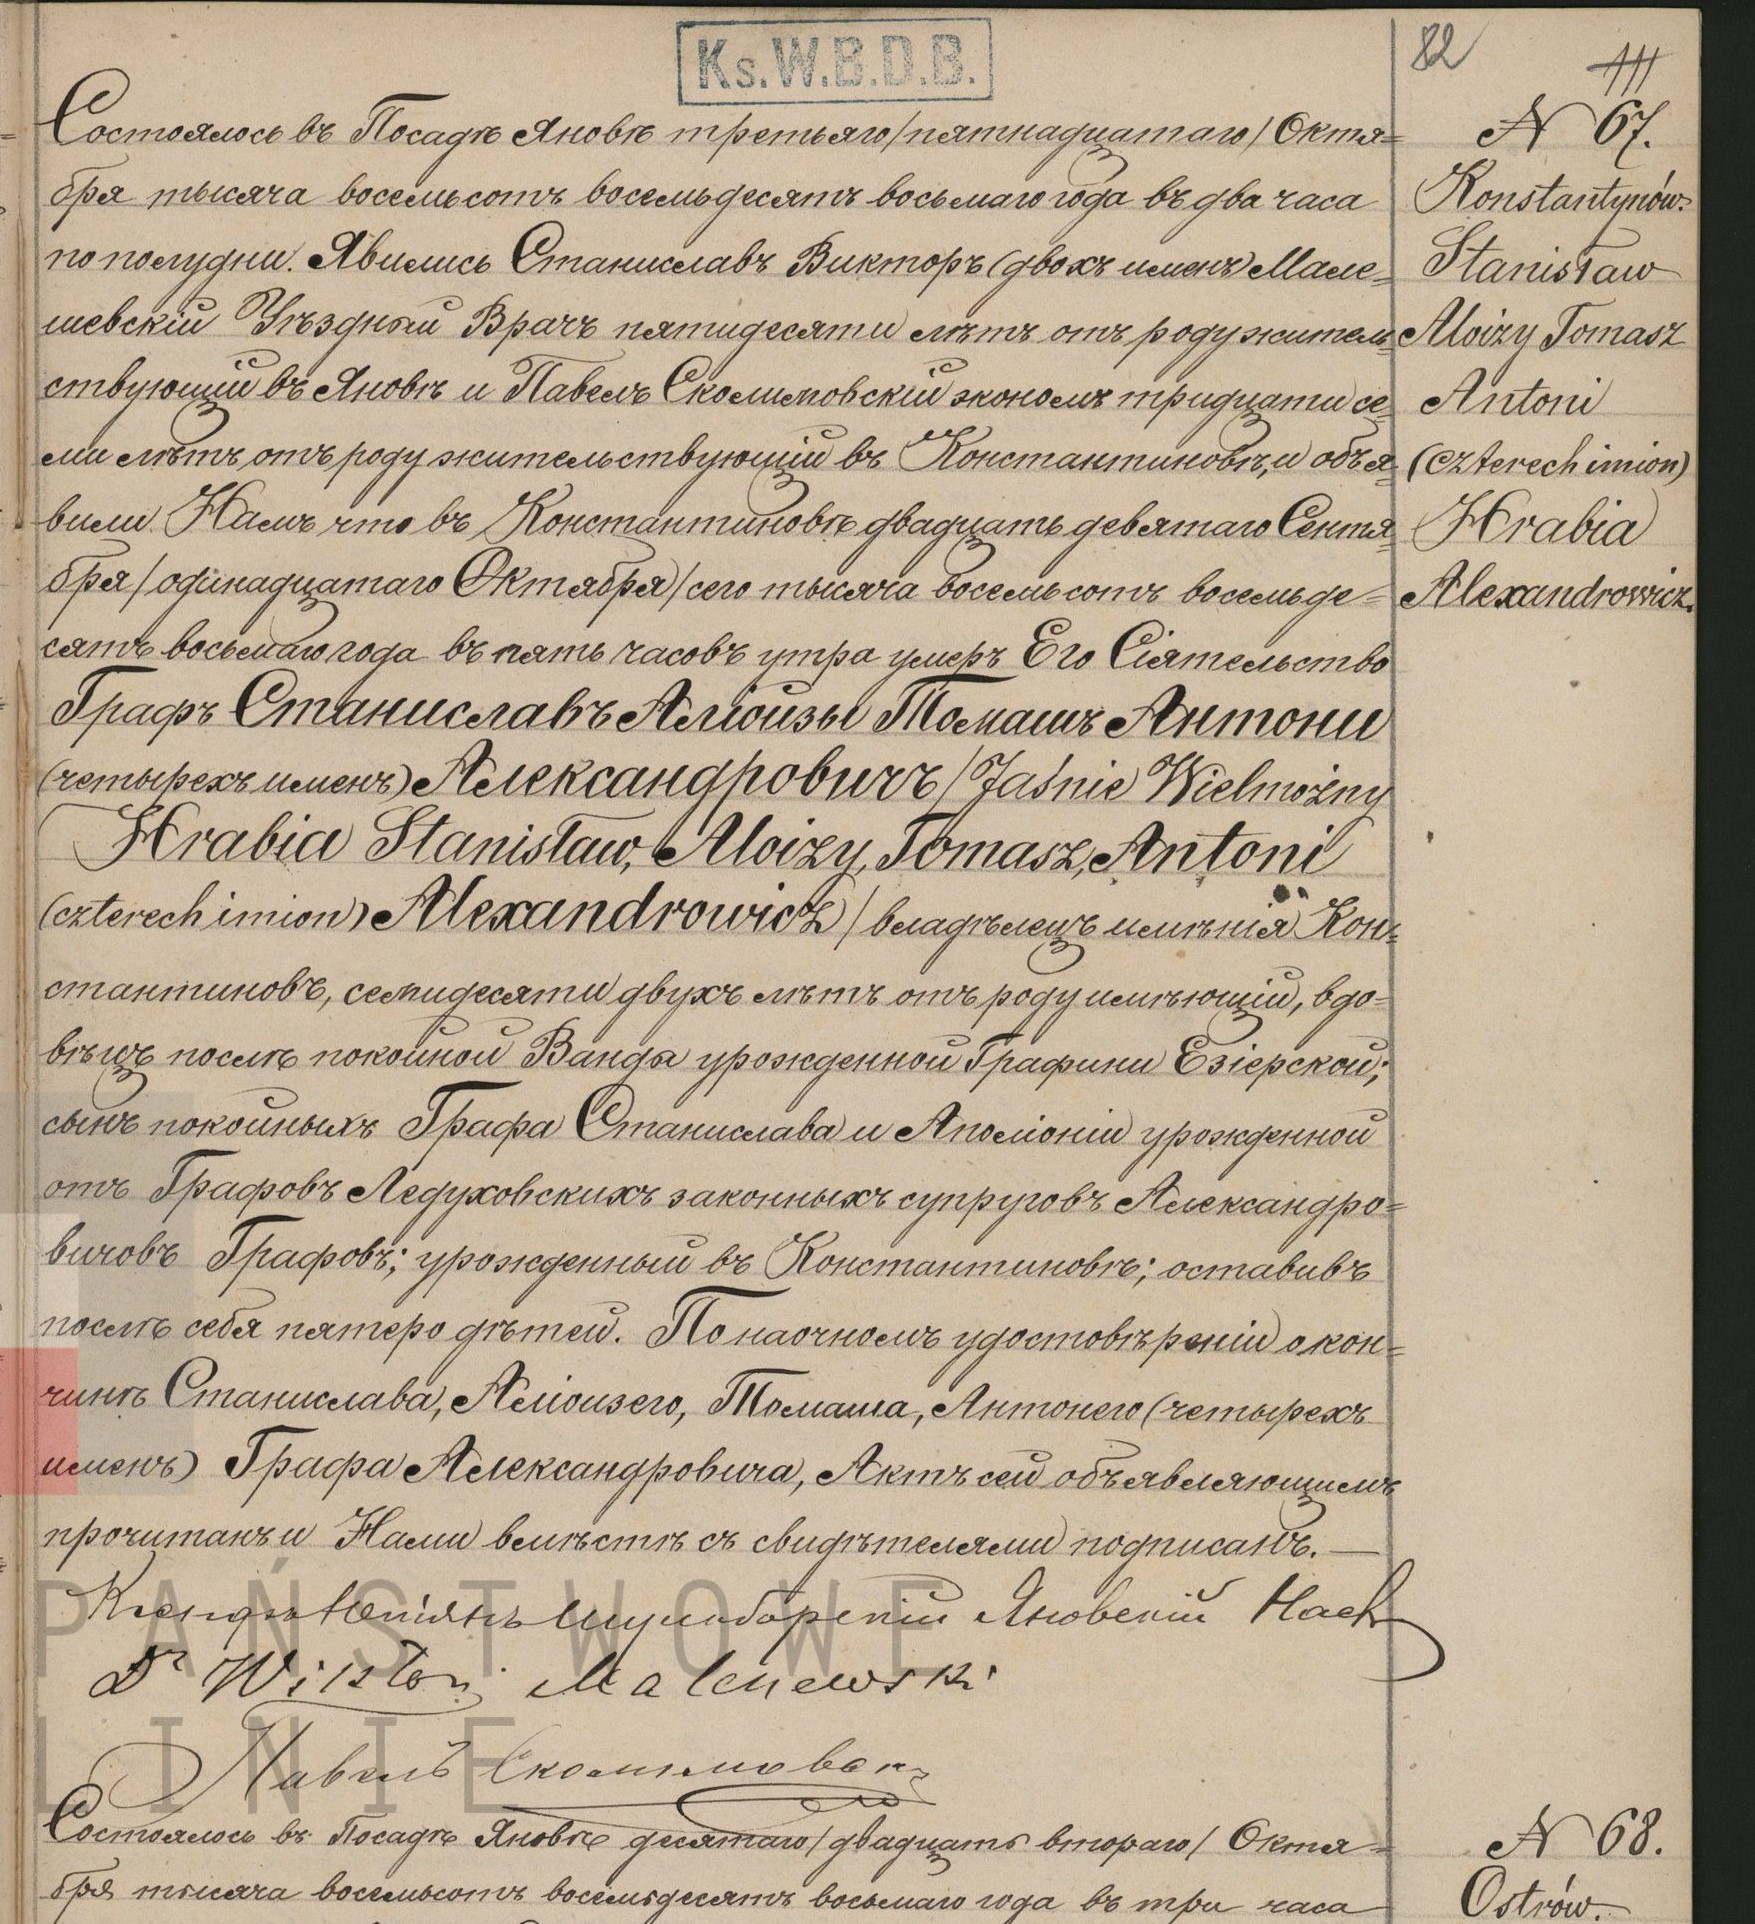 Ks.W.B.D.B.
82
111
Состоялось въ Посадѣ Яновѣ третьяго /пятнадцатаго/ Октя=
бря тысяча восемьсотъ восемьдесятъ восьмаго года въ два часа
по полудни. Явились Станиславъ Викторъ (двохъ именъ) Мале=
шевскій Уѣздный Врачъ пятидесяти лѣтъ отъ роду житель=
ствующій въ Яновѣ и Павелъ Сколимовскій экономъ тридцати се=
ми лѣтъ отъ роду жительствующій въ Константиновѣ, и объя=
вили Намъ что въ Константиновѣ двадцать девятаго Сентя=
бря /одинадцатаго Октября/ сего тысяча восемьсотъ восемьде=
сятъ восьмаго года въ пять часовъ утра умеръ Его Сіятельство
Графъ Станиславъ Алюизы Томашъ Антони
(четырехъ именъ) Александровичъ /Jaśnie Wielmożny
Hrabia Stanisław, Aloizy, Tomasz, Antoni
(czterech imion) Alexandrowicz/ владѣлецъ имѣнія Кон=
стантиновъ, семидесяти двухъ лѣтъ отъ роду имѣющій, вдо=
вѣцъ послѣ покойной Ванды урожденной Графини Езіерской;
сынъ покойныхъ Графа Станислава и Аполіоніи урожденной
отъ Графовъ Ледуховскихъ законныхъ супруговъ Александро=
вичовъ Графовъ; урожденный въ Константиновѣ; оставивъ
послѣ себя пятеро дѣтей. По наочномъ удостовѣреніи о кон=
чинѣ Станислава, Алюизего, Томаша, Антонего (четырехъ
именъ) Графа Александровича, Актъ сей объявляющимъ
прочитанъ и Нами вмѣстѣ съ свидѣтелями подписанъ. —
Ксендзъ Юліянъ Шульборскій Яновскій Наст
Dr Wiktor Maleszewski
Павелъ Сколимовски
N 67.
Konstantynów.
Stanisław
Aloizy Tomasz
Antoni
(czterech imion)
Hrabia
Alexandrowicz.
Состоялось въ Посадѣ Яновѣ десятаго /двадцать втораго/ Октя=
бря тысяча восемьсотъ восемьдесятъ восьмаго года въ три часа
N 68.
Ostrów.
PAŃSTWOWE
LINIE